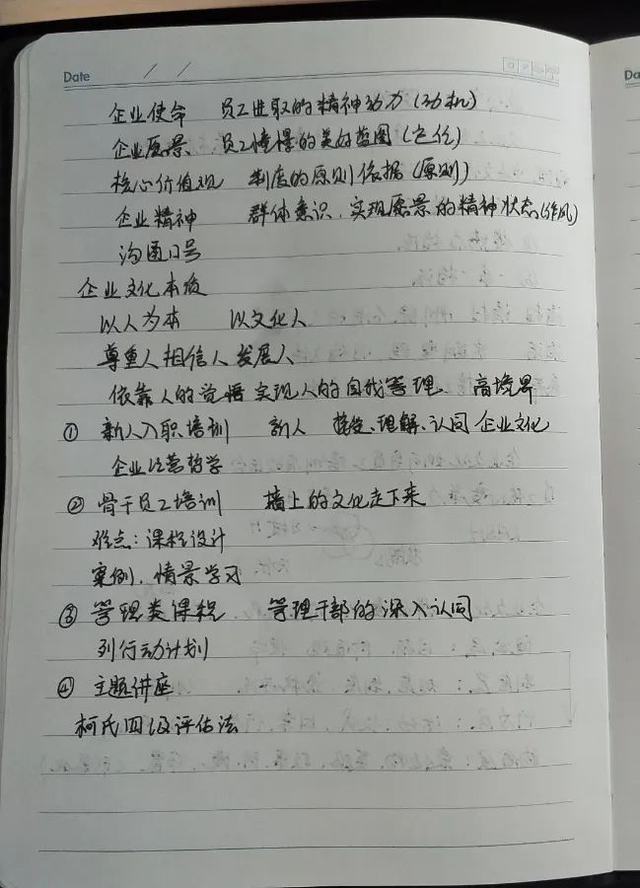 Date / /
企业使命 员工进取的精神动力(动机)
企业愿景、员工憧憬的美好蓝图(定位)
核心价值观 制度的原则依据(原则)
企业精神 群体意识、实现愿景的精神状态(作风)
沟通口号
企业文化本质
以人为本 以文化人
尊重人相信人发展人
依靠人的觉悟实现人的自我管理 高境界
① 新人入职培训 新人 接受、理解、认同企业文化
企业经营哲学
② 骨干员工培训 墙上的文化走下来
难点:课程设计
案例、情景学习
③ 管理类课程 管理干部的深入认同
列行动计划
④ 主题讲座
柯氏四级评估法